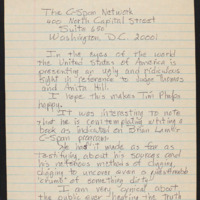 The C-Span Network
400 North Capital Street
Suite 650
Washington D.C. 20001
In the eyes of the world
the United States of America is
presenting an ugly and ridiculous
in reference to Judge Thomas
and Anita Hill.
I hope this makes Tim Phelps
happy.
It was interesting to note
that he is contemplating writing a
book as indicated on Brian Lamb's
C-Span program.
He had it made as far as
testifying about his sources and
his methods of digging and
digging to uncover even a
of something dirty.
I am very cynical about
the public ever hearing the truth